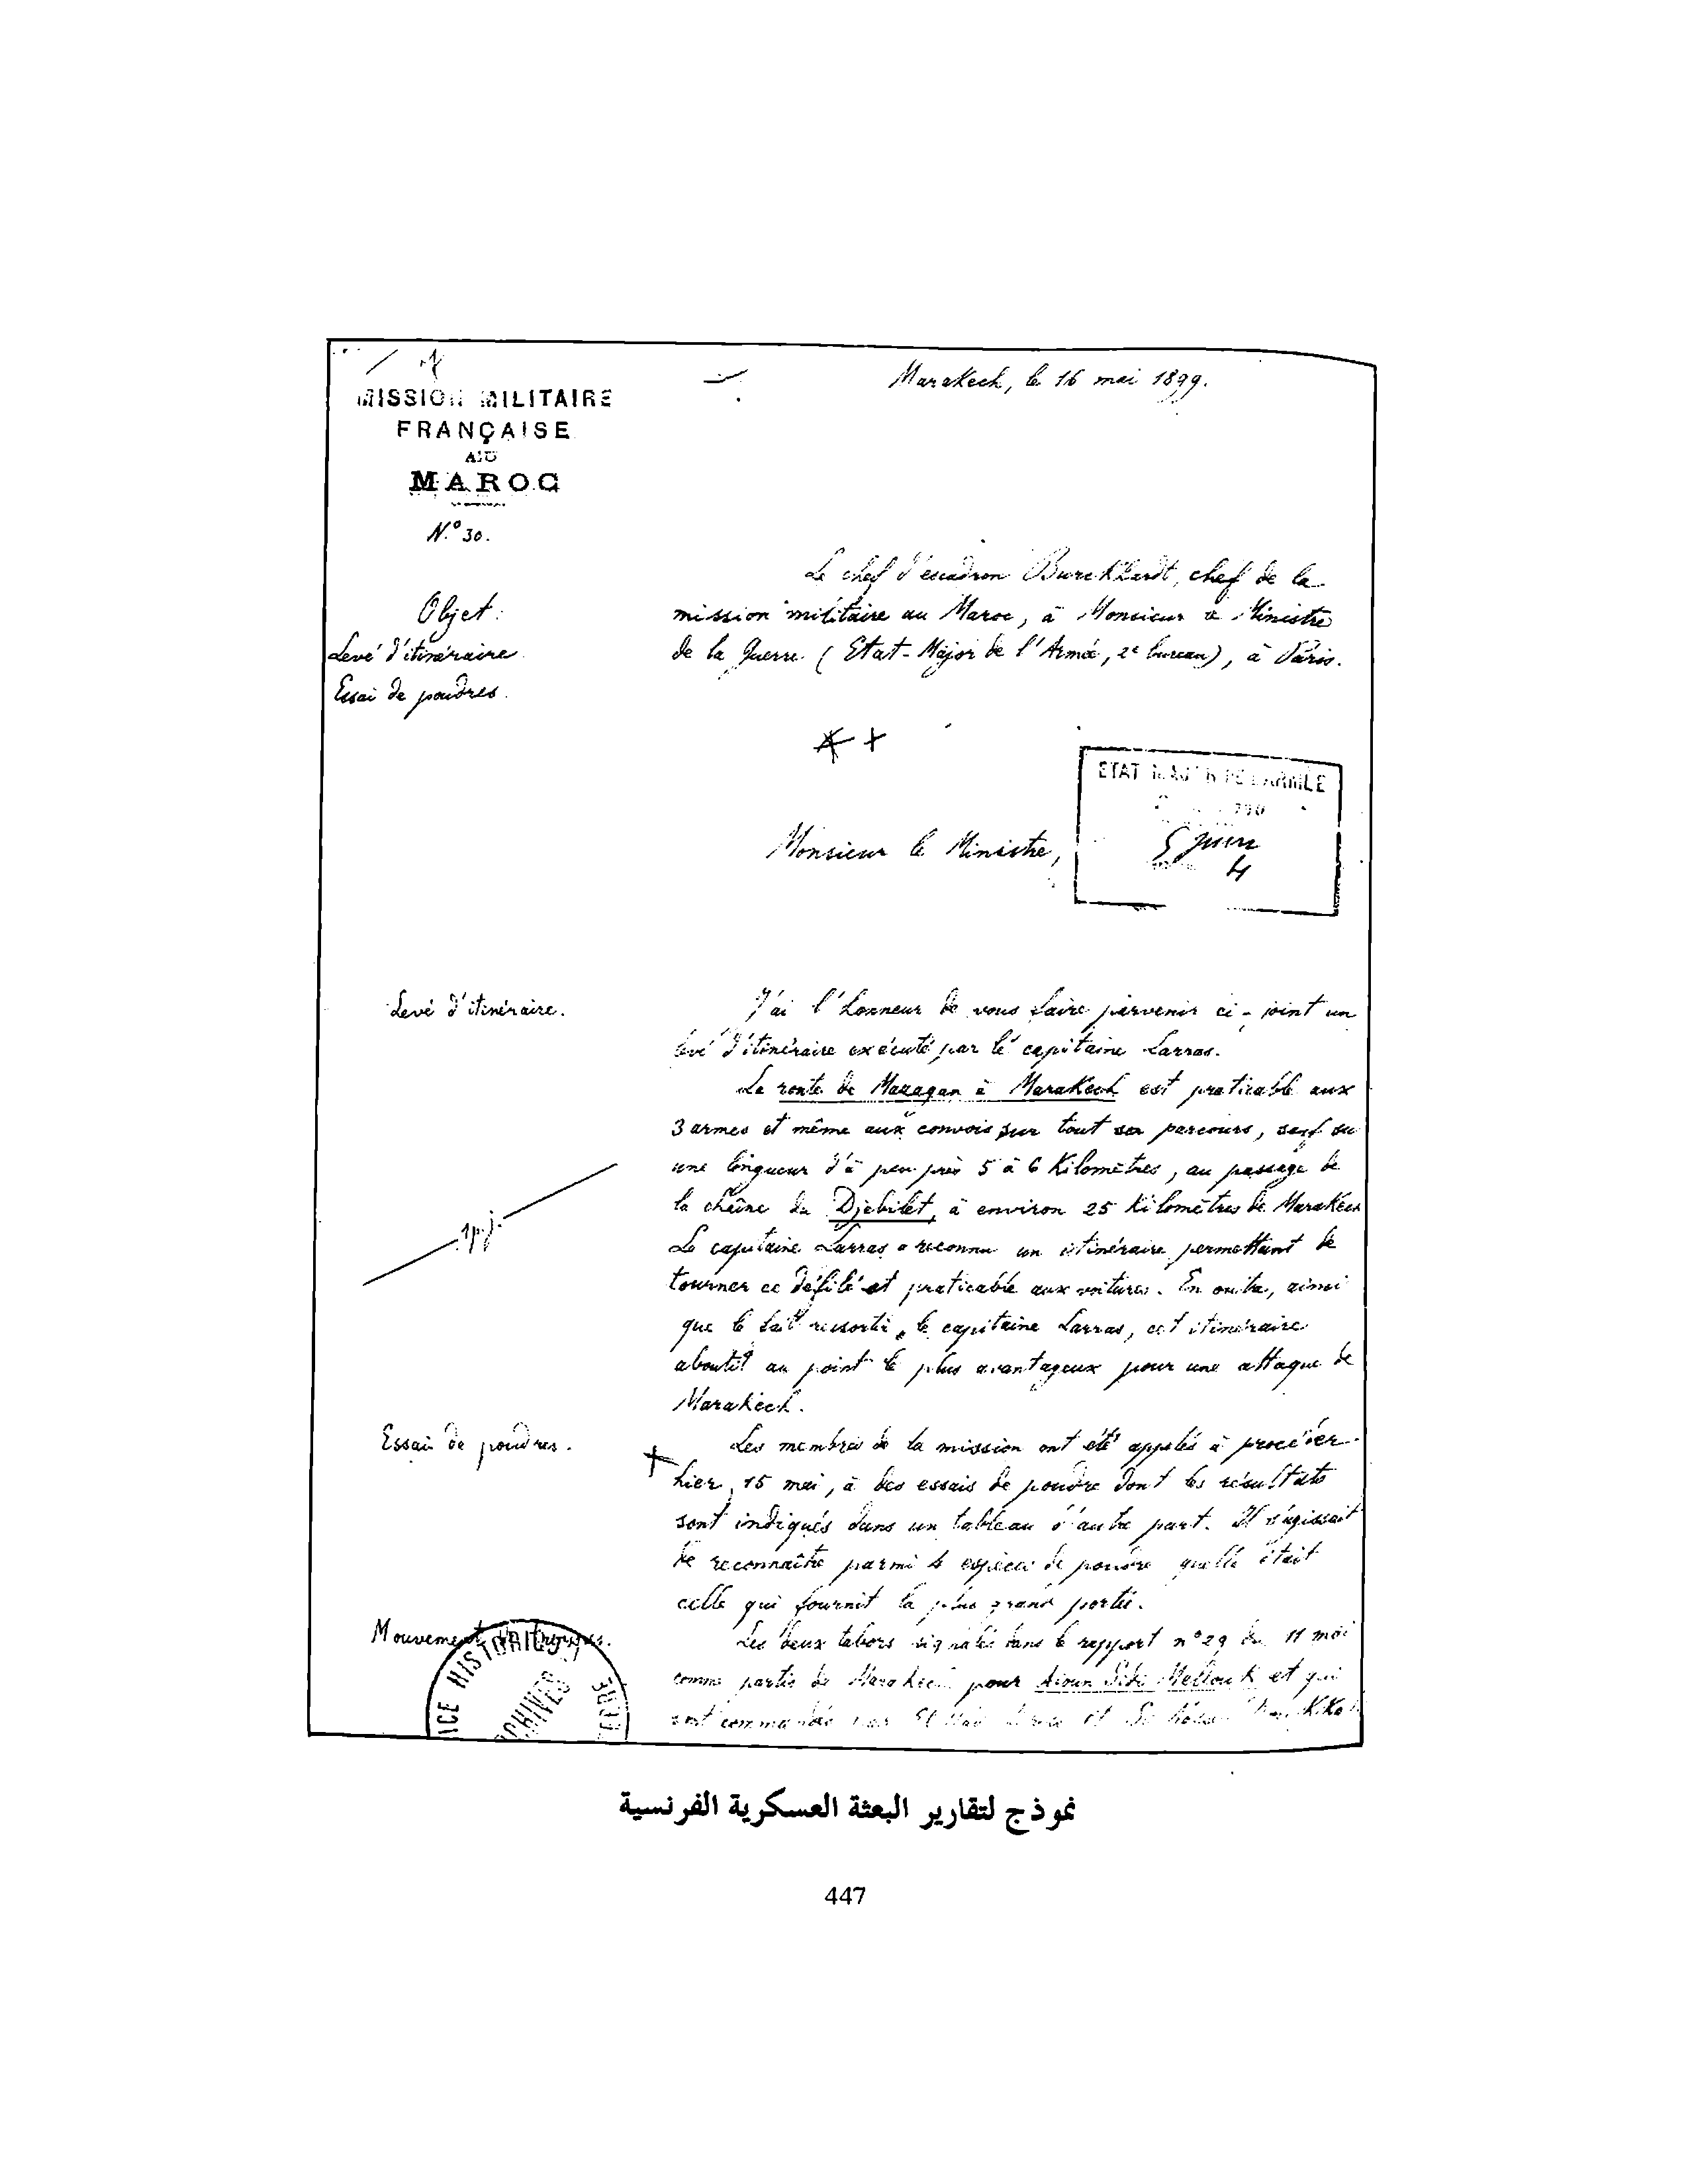 MISSION MILITAIRE
FRANÇAISE
AU
MAROC
N.° 30.
Marakech, le 16 mai 1899.
Objet:
Levé d'itinéraire
Essai de poudres.
Le chef d'escadron Burckhardt, chef de la
mission militaire au Maroc, à Monsieur le Ministre
de la Guerre (Etat-Major de l'Armée, 2e bureau), à Paris.
ETAT MAJOR DE L'ARMÉE
5 juin
4
Monsieur le Ministre,
Levé d'itinéraire.
J'ai l'honneur de vous faire parvenir ci-joint un
levé d'itinéraire exécuté par le capitaine Larras.
La route de Mazagan à Marakech est praticable aux
3 armes et même aux convois sur tout son parcours, sauf sur
une longueur d'à peu près 5 à 6 Kilomètres, au passage de
la chaîne du Djebilet, à environ 25 Kilomètres de Marakech
1 p.j.
Le capitaine Larras a reconnu un itinéraire permettant de
tourner ce défilé et praticable aux voitures. En outre, ainsi
que le fait ressortir le capitaine Larras, cet itinéraire
aboutit au point le plus avantageux pour une attaque de
Marakech.
Essai de poudres.
Les membres de la mission ont été appelés à procéder
hier, 15 mai, à des essais de poudre dont les résultats
sont indiqués dans un tableau d'autre part. Il s'agissait
de reconnaître parmi 4 espèces de poudre quelle était
celle qui fournit la plus grande portée.
Mouvement de troupes.
Les deux tabors signalés dans le rapport n° 29 du 11 mai
comme partis de Marakech pour Aioun Sidi Mellouk et qui
sont commandés par El Had
HISTORIQUE
ARCHIVES
نموذج لتقارير البعثة العسكرية الفرنسية
447